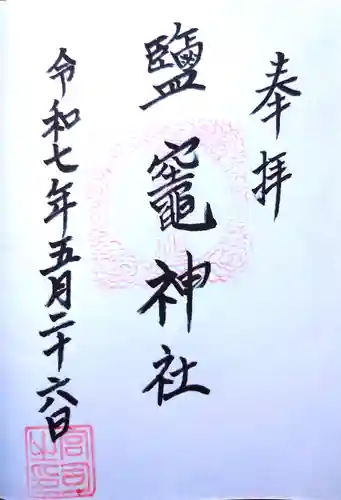 奉拝
鹽竈神社
令和七年五月二十六日
宮司之印